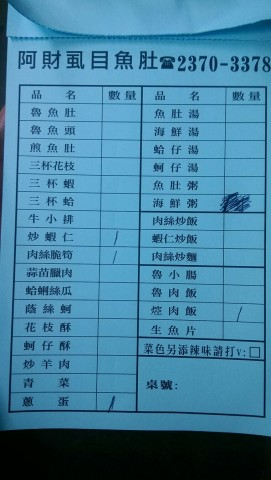 阿財虱目魚肚☎2370-3378
品名 數量 品名 數量
魯魚肚 魚肚湯
魯魚頭 海鮮湯
煎魚肚 蛤仔湯
三杯花枝 蚵仔湯
三杯蝦 魚肚粥
三杯蛤 海鮮粥
牛小排 肉絲炒飯
炒蝦仁 / 蝦仁炒飯
肉絲脆筍 / 肉絲炒麵
蒜苗臘肉 魯小腸
蛤蜊絲瓜 魯肉飯
蔭絲蚵 焢肉飯 /
花枝酥 生魚片
蚵仔酥 菜色另添辣味請打v:□
炒羊肉 桌號:
青菜
蔥蛋 /